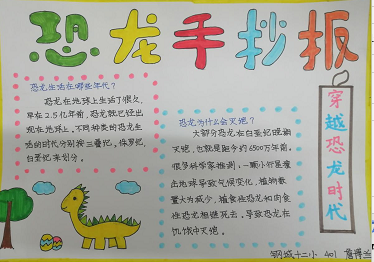 恐龙手抄报
恐龙生活在哪些年代？
恐龙在地球上生活了很久，
早在2.5亿年前，恐龙就已经出
现在地球上。不同种类的恐龙生
活的时代分别按三叠纪，侏罗纪，
白垩纪来划分。
恐龙为什么会灭绝？
大部分恐龙在白垩纪晚期
灭绝，也就是距今约6500万年前。
很多科学家推测，一颗小行星撞
击地球导致气候变化，植物数
量大为减少，植食性恐龙和肉食
性恐龙相继死去，导致恐龙在
饥饿中灭绝。
穿越恐龙时代
钢城十二小 401